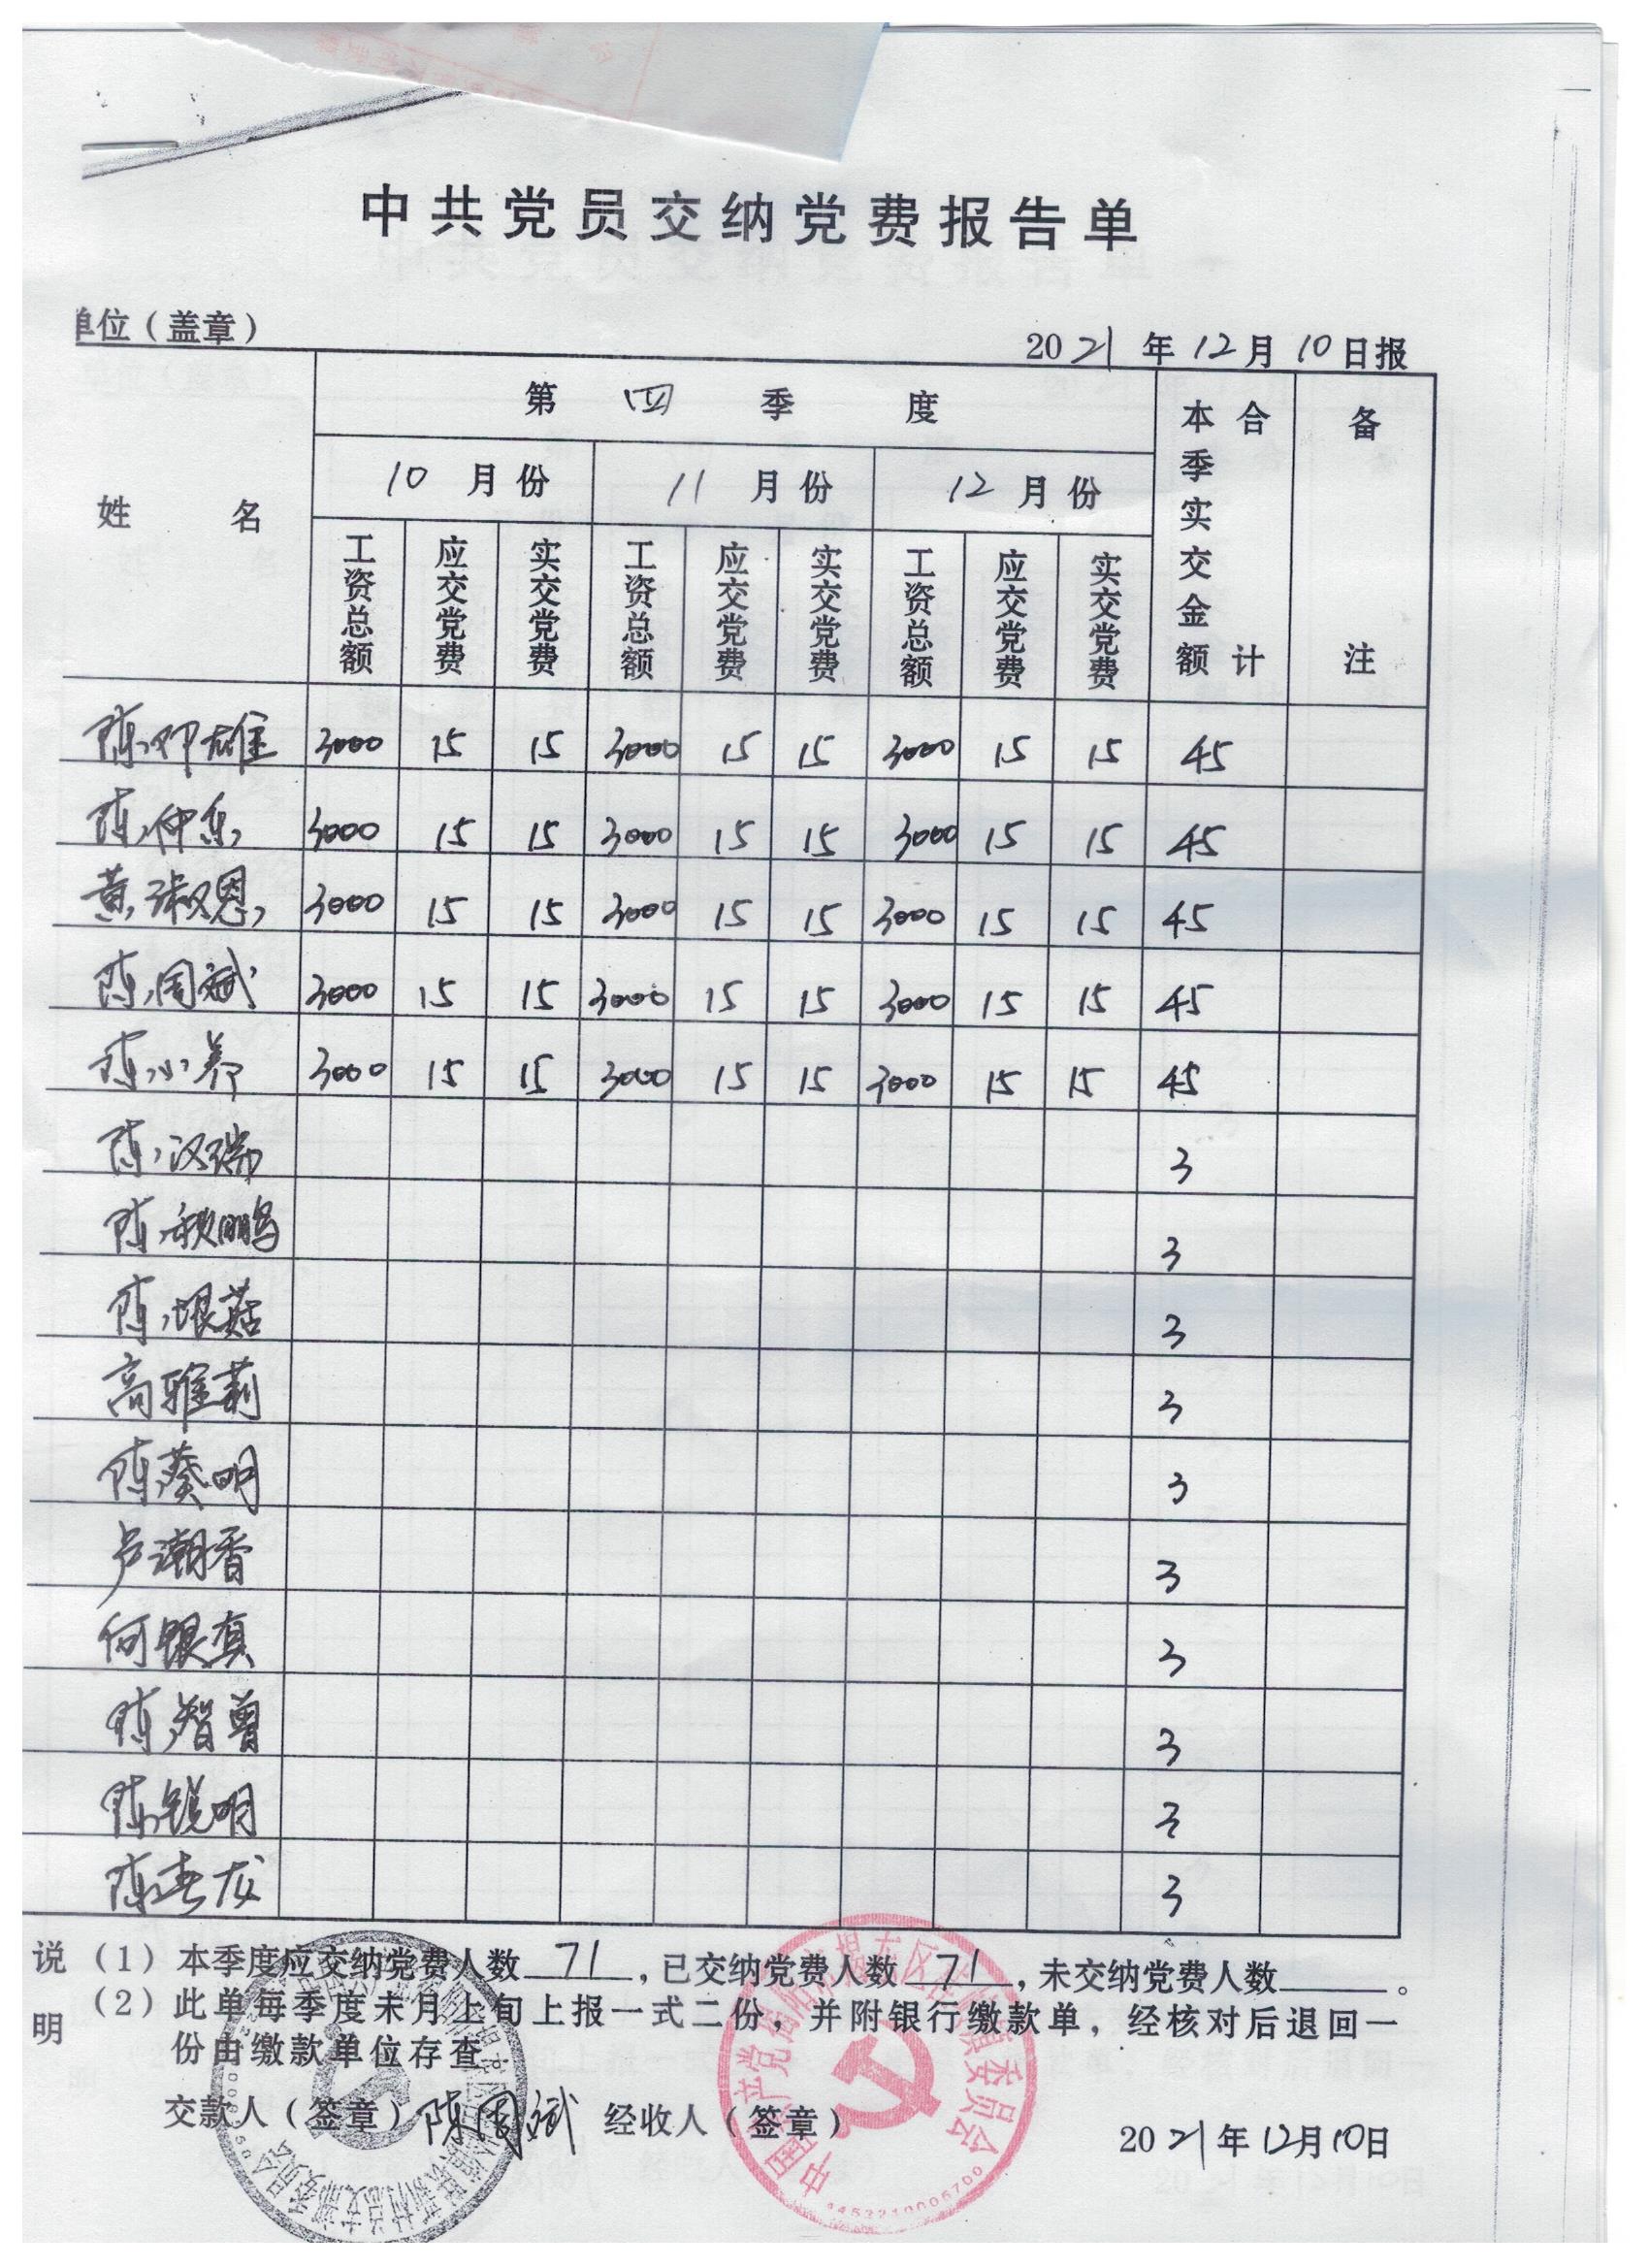 中共党员交纳党费报告单
单位（盖章） 2021年12月10日报
姓名 第四季度 本季实交金额 合计 备注
10月份 11月份 12月份
工资总额 应交党费 实交党费 工资总额 应交党费 实交党费 工资总额 应交党费 实交党费
陈 雄 3000 15 15 3000 15 15 3000 15 15 45
陈仲 3000 15 15 3000 15 15 3000 15 15 45
黄淑恩 3000 15 15 3000 15 15 3000 15 15 45
陈周斌 3000 15 15 3000 15 15 3000 15 15 45
陈小 3000 15 15 3000 15 15 3000 15 15 45
陈汉瑞 3
陈秋鹏 3
陈垠菇 3
高雅莉 3
陈葵明 3
卢潮香 3
何银真 3
陈智曾 3
陈锐明 3
陈 龙 3
说明 （1）本季度应交纳党费人数71，已交纳党费人数71，未交纳党费人数 。
（2）此单每季度末月上旬上报一式二份，并附银行缴款单，经核对后退回一
份由缴款单位存查。
交款人（签章）陈周斌 经收人（签章） 2021年12月10日
中国共产党 区 镇委员会
4452210006700